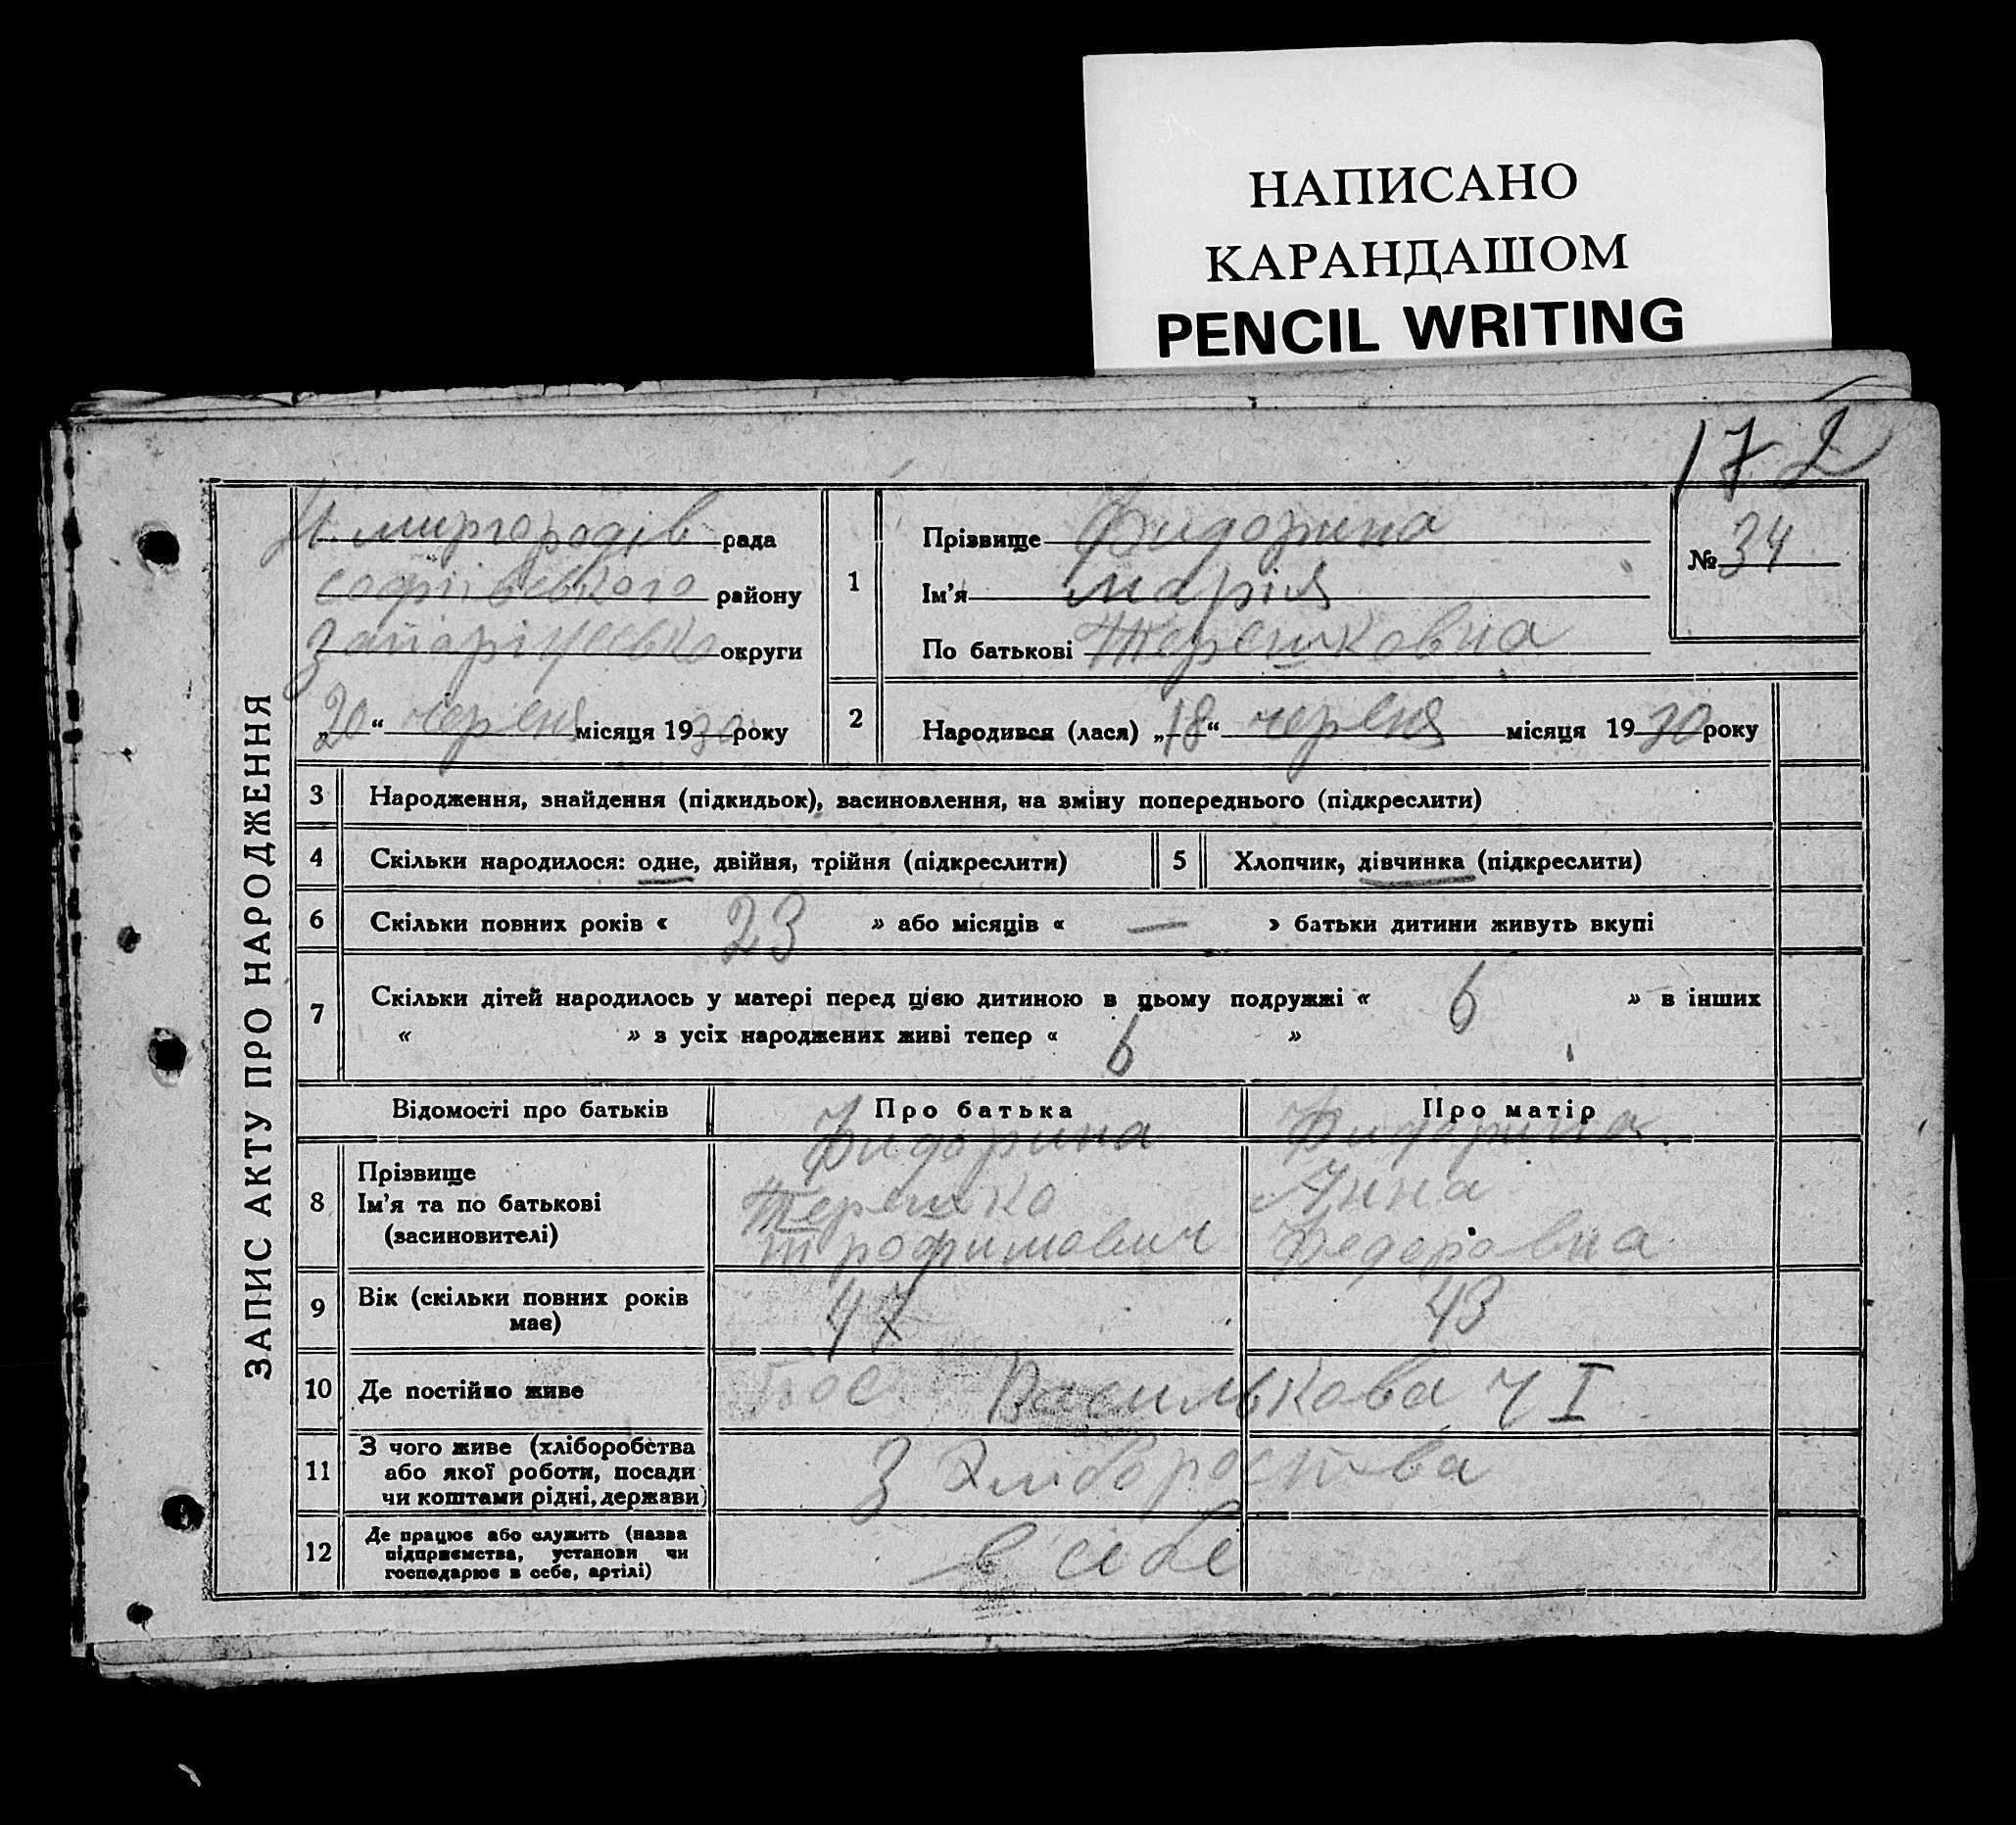 НАПИСАНО
КАРАНДАШОМ
PENCIL WRITING
172
ЗАПИС АКТУ ПРО НАРОДЖЕННЯ
Н. миргородів рада
софіївського району
округи
„20“ червня місяця 1930 року
1
Прізвище Фидорина
Ім'я марія
По батькові Терешковна
№ 34
2 Народився (лася) „18“ червня місяця 1930 року
3 Народження, знайдення (підкидьок), засиновлення, на зміну попереднього (підкреслити)
4 Скільки народилося: одне, двійня, трійня (підкреслити)
5 Хлопчик, дівчинка (підкреслити)
6 Скільки повних років « 23 » або місяців « — » батьки дитини живуть вкупі
7 Скільки дітей народилось у матері перед цією дитиною в цьому подружжі « 6 » в інших
« » з усіх народжених живі тепер « 6 »
Відомості про батьків Про батька Про матір
8 Прізвище
Ім'я та по батькові
(засиновителі)
Фидорина
Терешко
трофимович
Фидорина
Анна
Федоровна
9 Вік (скільки повних років
має)
47 43
10 Де постійно живе
Василькова Ч I
11 З чого живе (хліборобства
або якої роботи, посади
чи коштами рідні, держави)
З Хлібороства
12 Де працює або служить (назва
підприємства, установи чи
господарює в себе, артілі)
в себе